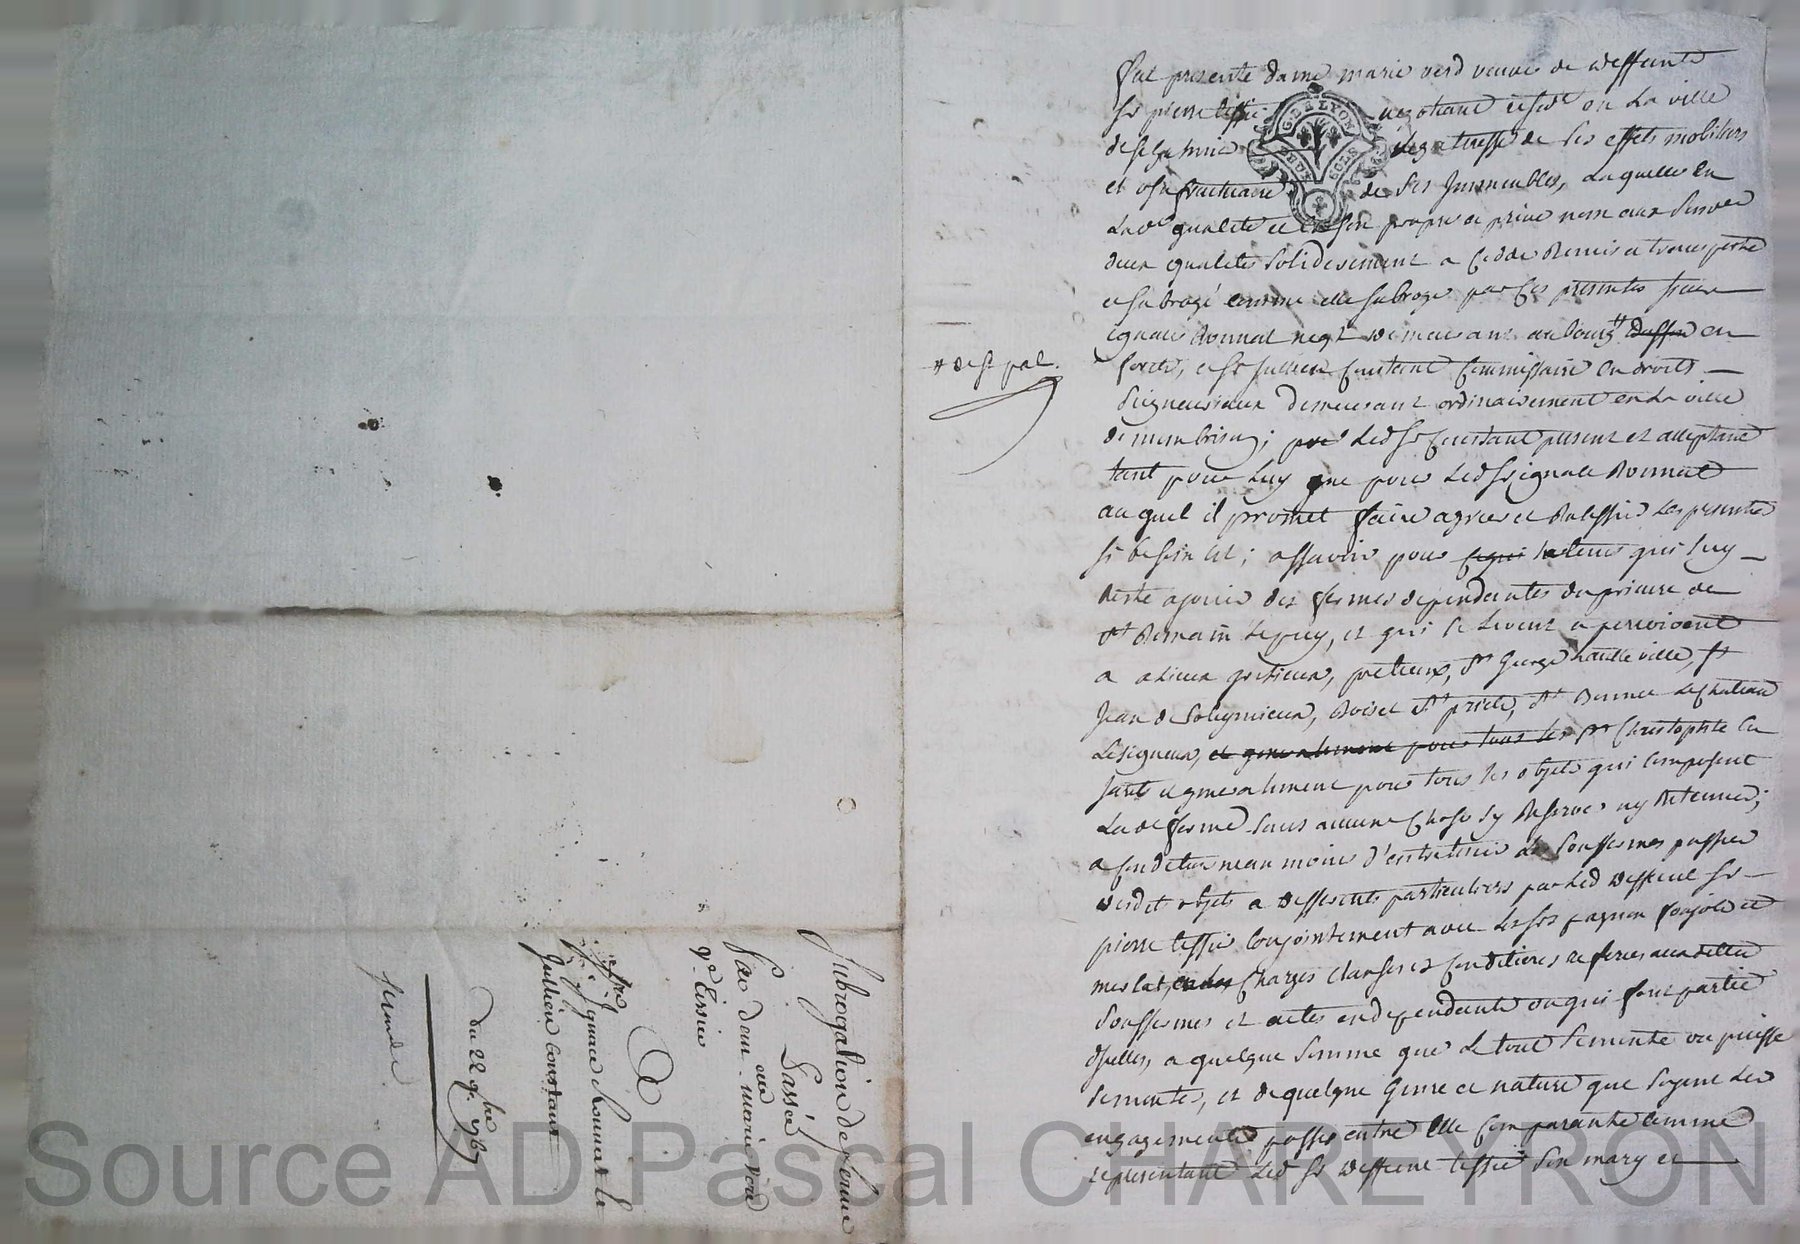 fut presente dame marie verd veuve de deffunt
sr pierre tissie negotiant en la ville
legatresse de ses effets mobiliers
et usufructuaire de ses jmmeubles, laquelle en
lade qualité et en son propre et privé nom aux susdes
deux qualités solidairement a cedde remis et transporté
et subrogé comme elle subroge par ces presentes sieur
ignace Bonnat negt demeurant au bourg # dussou en
forets, et sr jullien Constant Commissaire en droits
seigneuriaux demeurant ordinairement en la ville
de montbrison; led sr Constant present et acceptant
tant pour luy que pour led sr ignace Bonnat
auquel il promet faire agréer et Ratiffier les presentes
si besoin est; assavoir pour le tems qui luy
Reste a jouir des fermes dependantes du prieuré de
st Romain le puy, et qui se levent et perçoivent
a precieux, st George hauteville, st
jean de soleymieux, Boisset st priest, st Bonnet le Chateau
Lesigneux, et generalement pour tous les st Christophle en
jarret et generalement pour tous les objets qui composent
lade ferme sans aucune chose sy Reserver ny Retenir;
a condition neanmoins d'entretenir les sousfermes passées
desdits objets a differents particuliers par led deffunt sr
pierre tissie conjointement avec les srs
Charges clauses et conditions
sousfermes et actes en dependants ou qui font partie
d'jcelles, a quelque somme que le tout se monte ou puisse
se monter, et de quelque genre et nature que soyent les
engagements passés entre elle comparante comme
representant led sr deffunt tissie son mary et
# de st pal.
Subrogation de ferme
Passée
par dame marie verd
ve Tissier
A
srs ignace Bonnat et
Jullien Constant
du 22 9bre 1787
Source AD Pascal CHAREYRON
G. DE LYON
DEUX SOLS